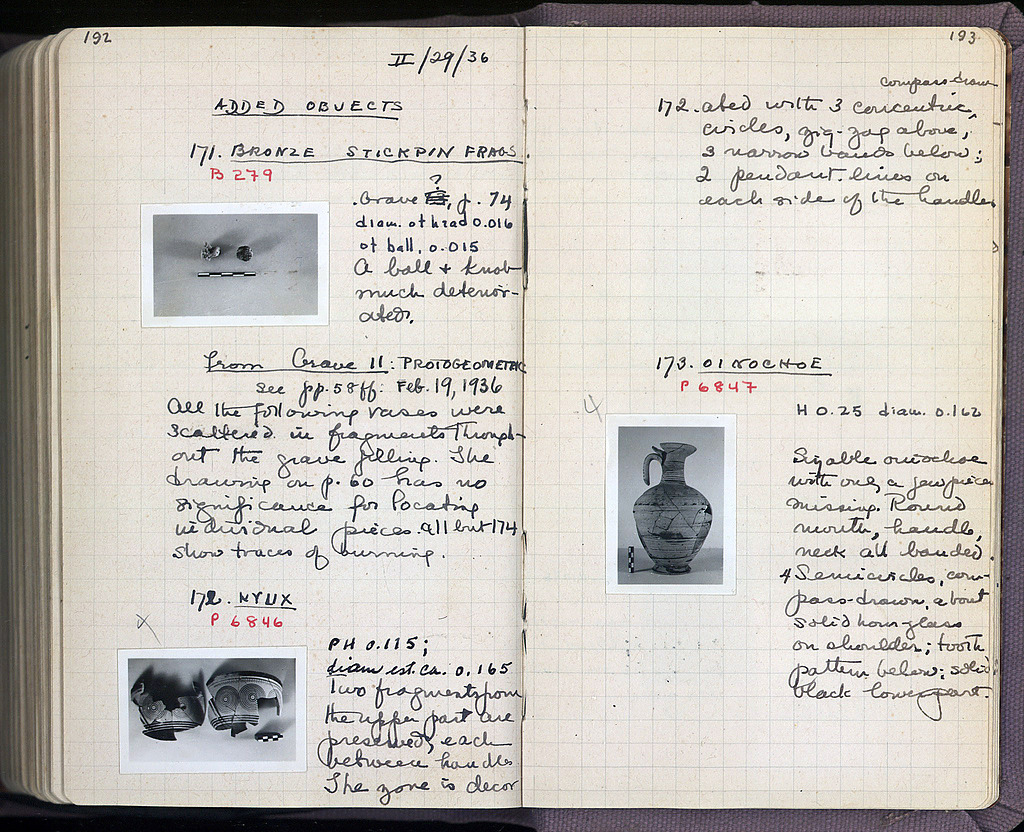 192
II/29/36
ADDED OBJECTS
171. BRONZE STICKPIN FRAGS.
B 279
?
Grave, p. 74
diam. of head 0.016
of ball, 0.015
A ball + knob
much deterior-
ated.
from Grave II: PROTOGEOMETRIC
see pp. 58 ff: Feb. 19, 1936
All the following vases were
scattered in fragments through-
out the grave filling. The
drawing on p. 60 has no
significance for locating
individual pieces. all but 174
show traces of burning.
172.
P 6846
PH 0.115;
diam est. ca. 0.165
Two fragments from
the upper part are
preserved, each
between handles
The zone is decor
193
compass-drawn
172. ated with 3 concentric
circles, zig-zag above,
3 narrow bands below;
2 pendant lines on
each side of the handles
173. OINOCHOE
P 6847
H 0.25 diam. 0.162
Sizable oinochoe
with only a few pieces
missing. Round
mouth, handle,
neck all banded.
4 Semicircles, com-
pass-drawn, about
solid hour-glass
on shoulder; tooth
pattern below: solid
black lower part.